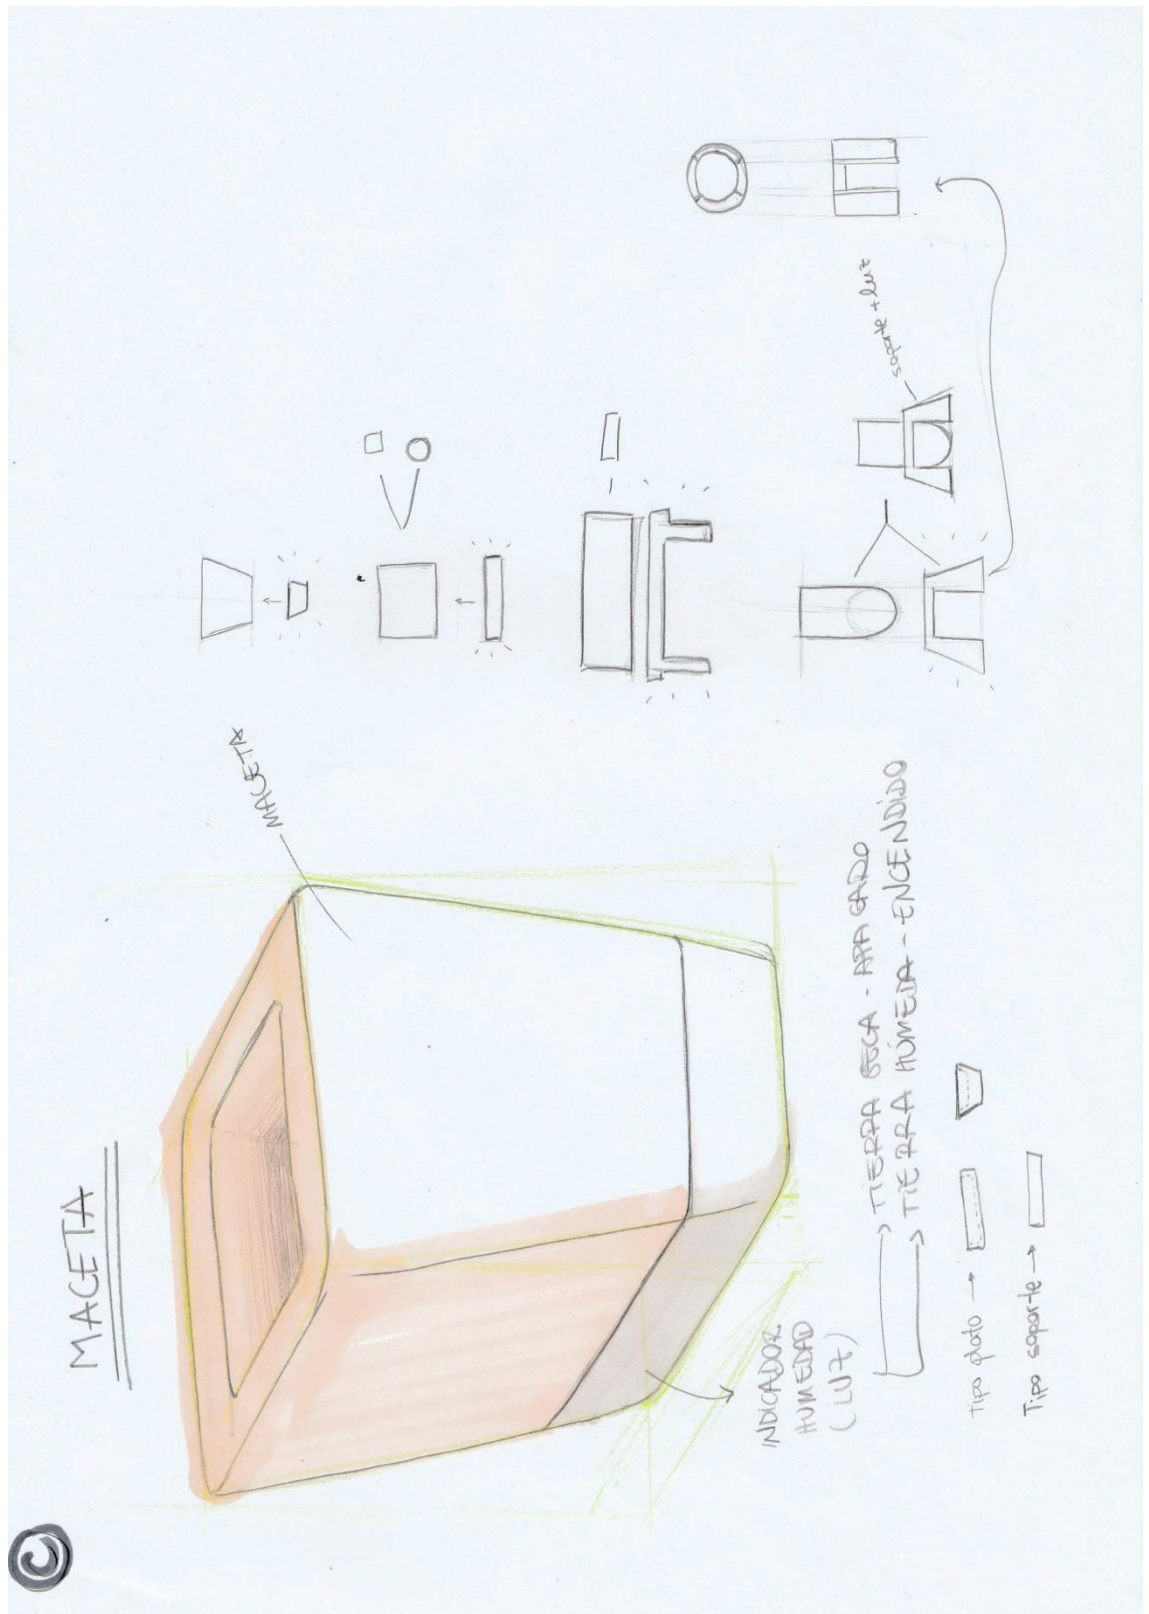 ©
MACETA
MACETA
INDICADOR
HUMEDAD
(LUZ)
TIERRA SECA - APAGADO
TIERRA HÚMEDA - ENCENDIDO
Tipo plato →
Tipo soporte →
soporte + luz